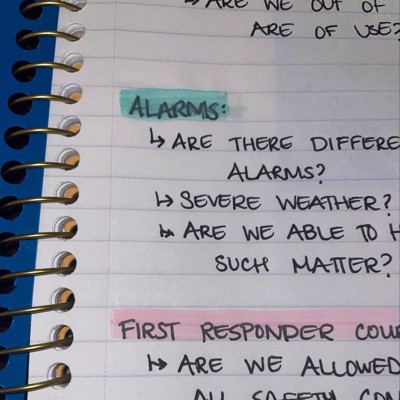 ↳ ARE WE OUT OF
ARE OF USE?
ALARMS:
↳ ARE THERE DIFFERE
ALARMS?
↳ SEVERE WEATHER?
↳ ARE WE ABLE TO H
SUCH MATTER?
FIRST RESPONDER COU
↳ ARE WE ALLOWED
ALL SAFETY CON